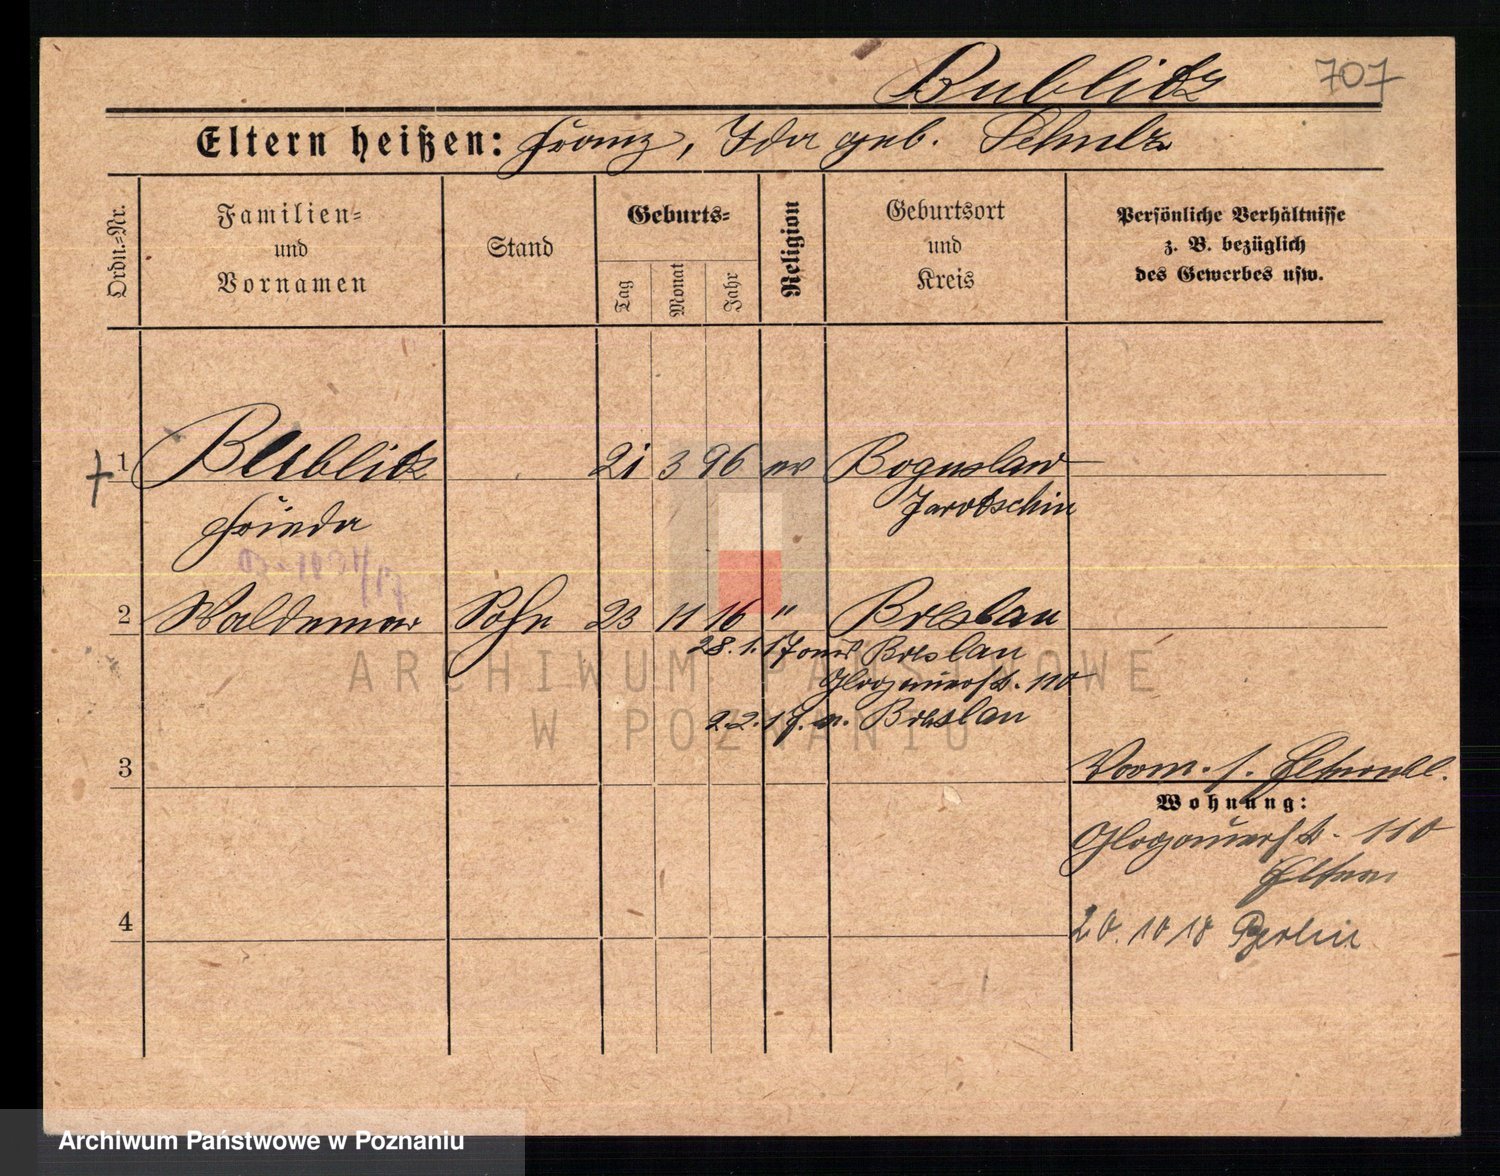 707
Bublitz
Eltern heißen: Franz, Ida geb. Schulz
Ordn.=Nr.
Familien=
und
Vornamen
Stand
Geburts=
Tag
Monat
Jahr
Religion
Geburtsort
und
Kreis
Persönliche Verhältnisse
z. B. bezüglich
des Gewerbes usw.
1 Bublitz 21 3 96 ev Boguslaw
Frieda Jarotschin
2 Waldemar Sohn 23 11 16 " Breslau
28.1.17 aus Breslau
Glogauerst. 110
2.2.17. n. Breslau
3
Vorm. f.
Wohnung:
Glogauerst. 110
Eltern
4
20. 10 18 Berlin
ARCHIWUM PAŃSTWOWE
W POZNANIU
Archiwum Państwowe w Poznaniu